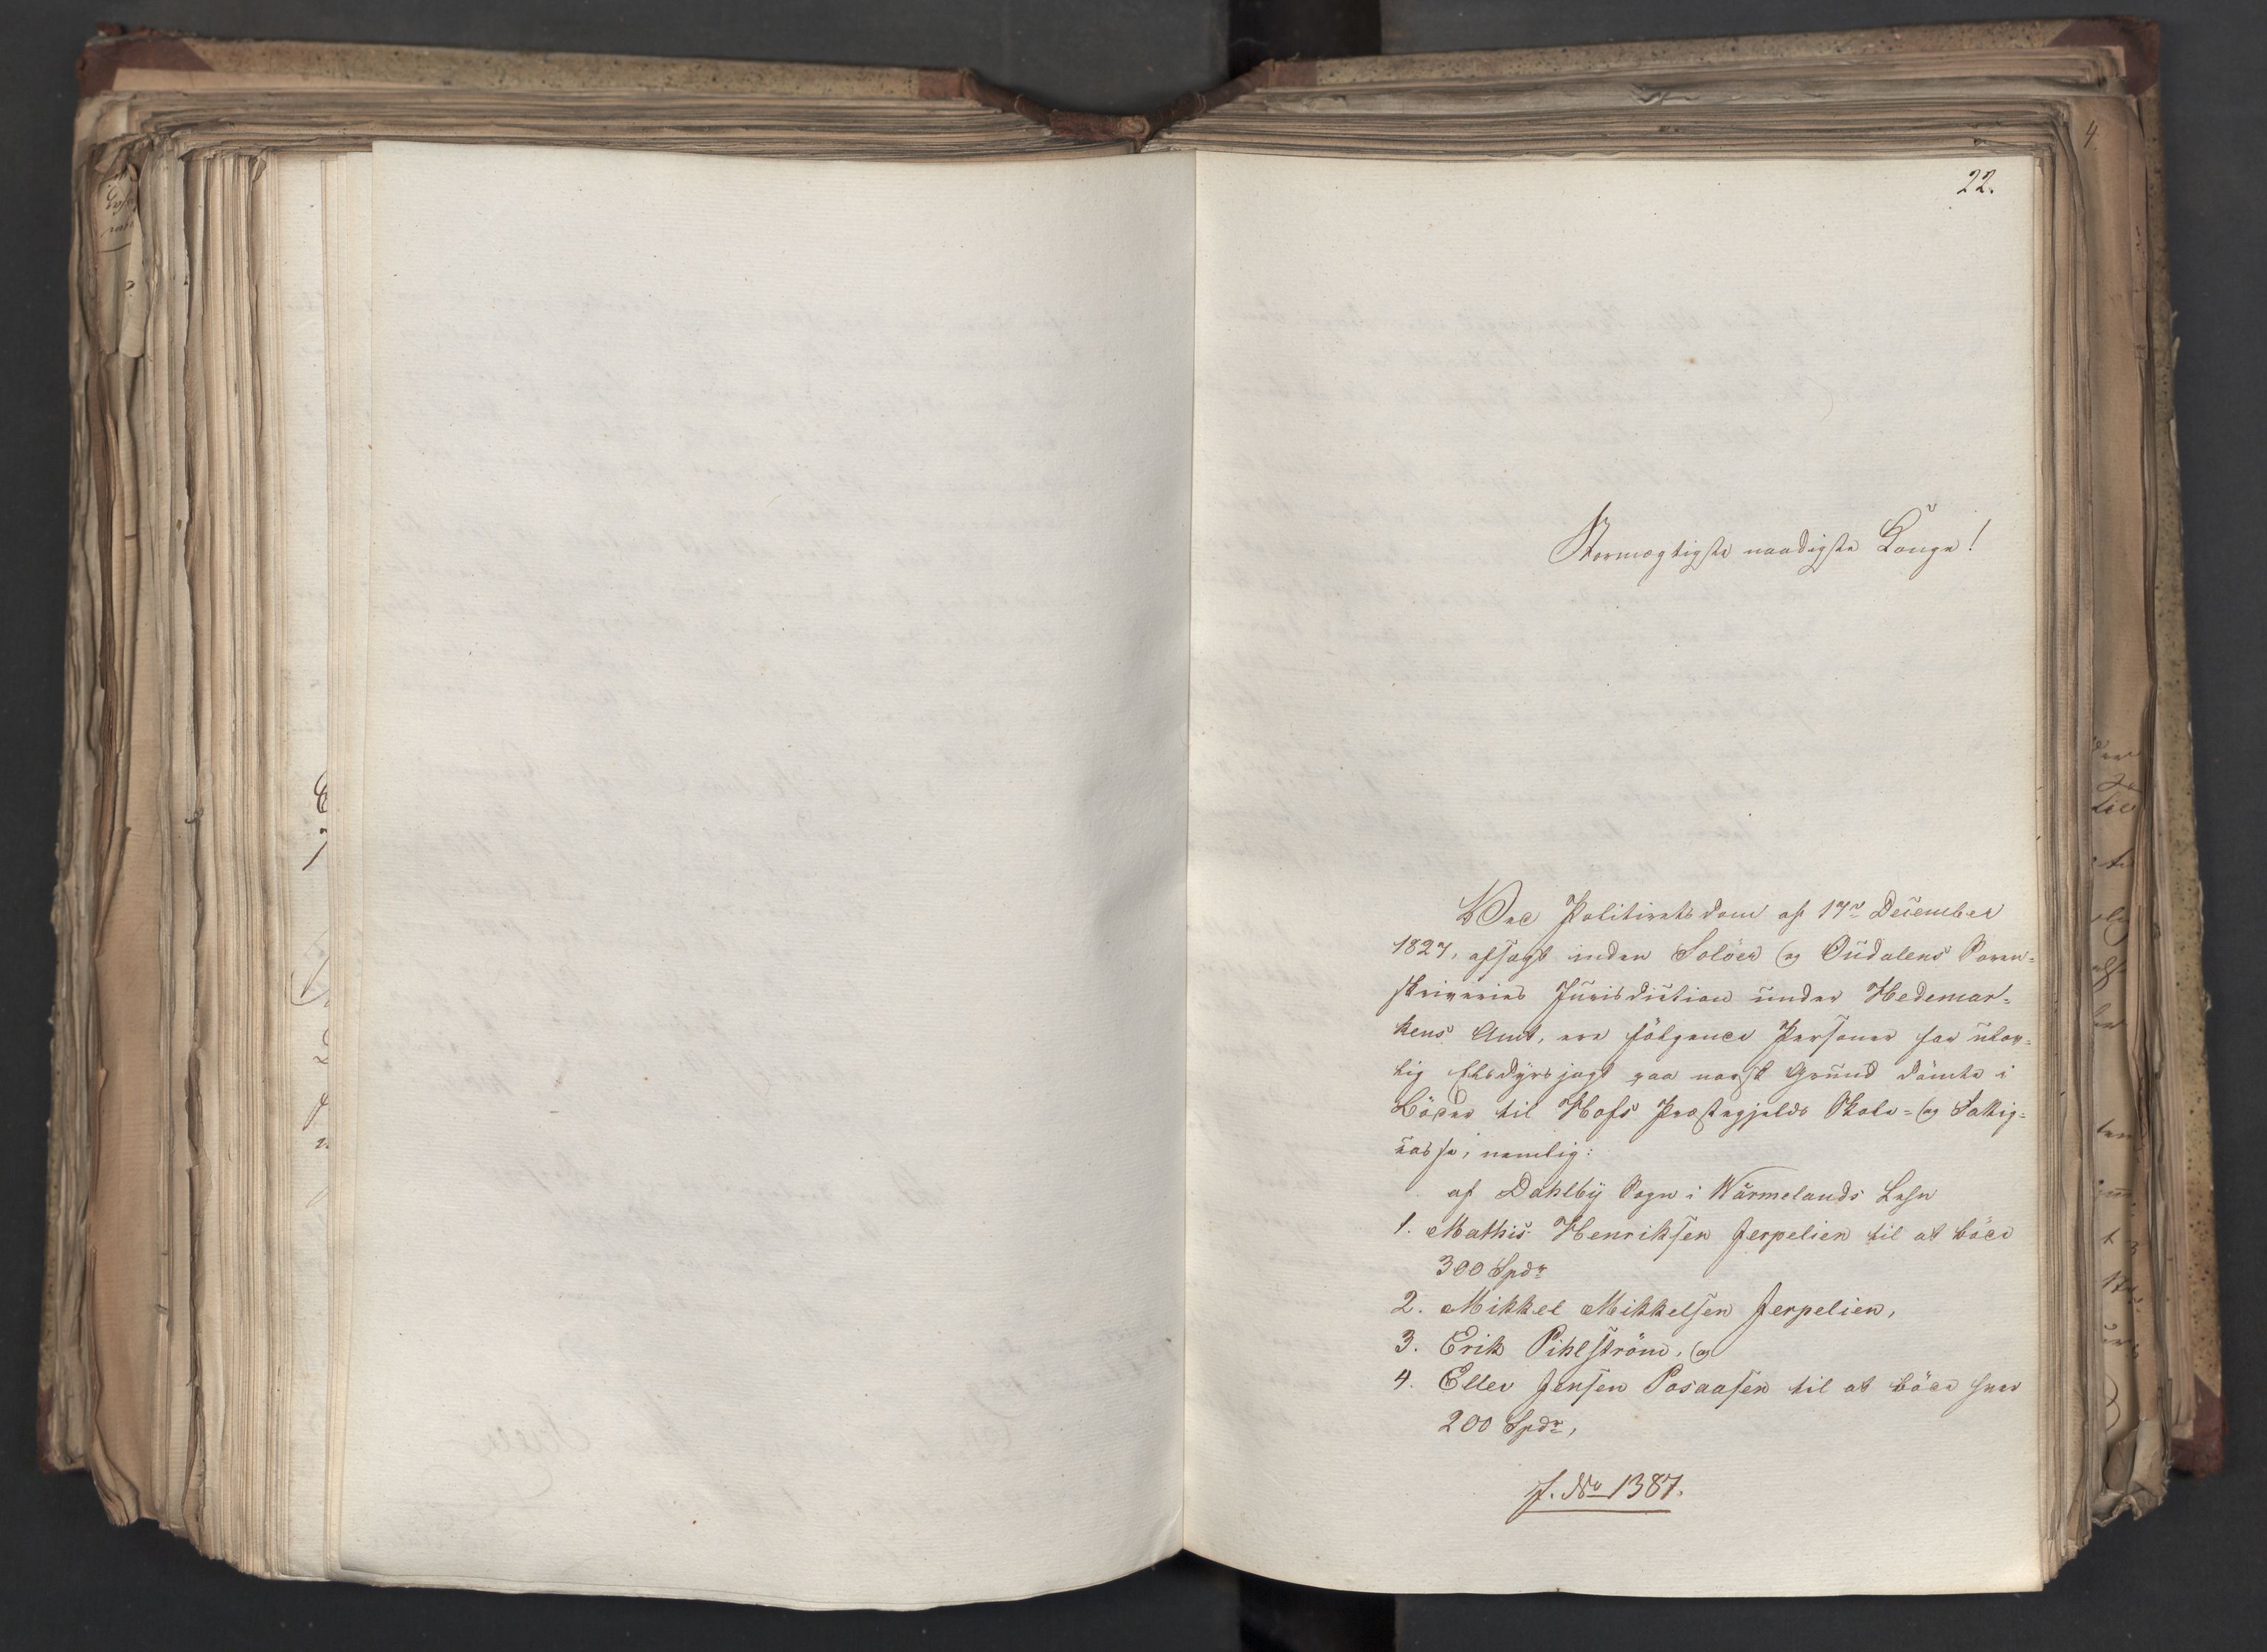 22.
Stormægtigste naadigste Konge!
Ved Politieretsdom af 17de December
1827, afsagt inden Solöer og Oudalens Soren-
skriveries Jurisdiction under Hedemar-
kens Amt, ere fölgende Personer for ulov-
lig Elsdyrsjagt paa norsk Grund dömte i
Böder til Hofs Præstegjelds Skole- og Fattig-
casse, nemlig:
af Dahlby Sogn i Wärmelands Lehn
1. Mathis Henriksen Jerpelien til at böde
300 Spdr
2. Mikkel Mikkelsen Jerpelien,
3. Erik Pihlström, og
4. Ellev Jensen Posaasen til at böde hver
200 Spdr,
J. No 1387.